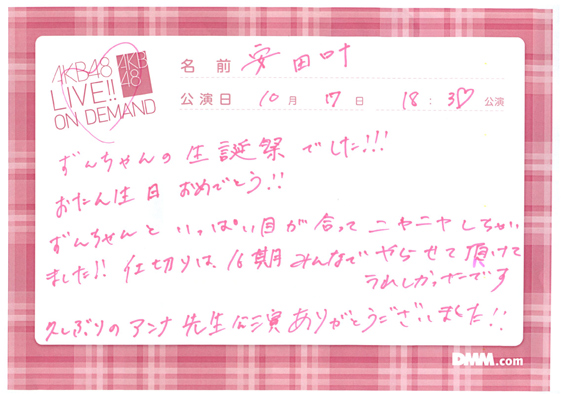 AKB48
LIVE!!
ON DEMAND
AKB
48
名前 安田叶
公演日 10月 17日 18:30 公演
ずんちゃんの生誕祭でした!!!
おたん生日おめでとう!!
ずんちゃんといっぱい目が合ってニヤニヤしちゃい
ました!! 仕切りは、16期みんなでやらせて頂けて
うれしかったーです
久しぶりのアンナ先生公演ありがとうございました!!
DMM.com